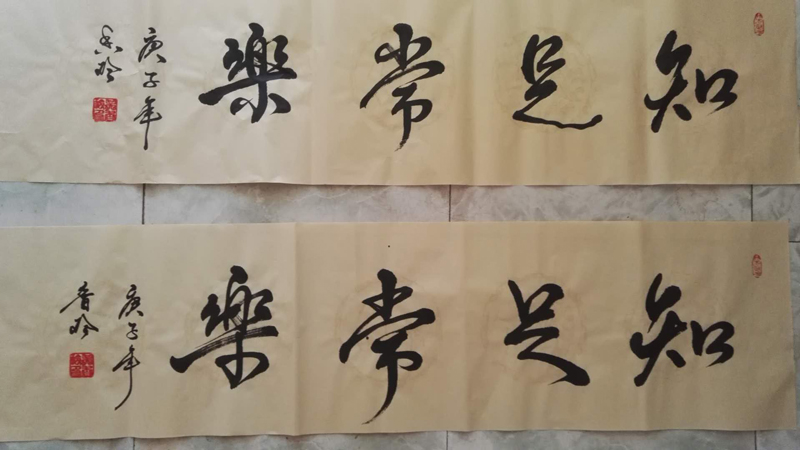 知足常樂
庚子年
香吟
知足常樂
庚子年
香吟